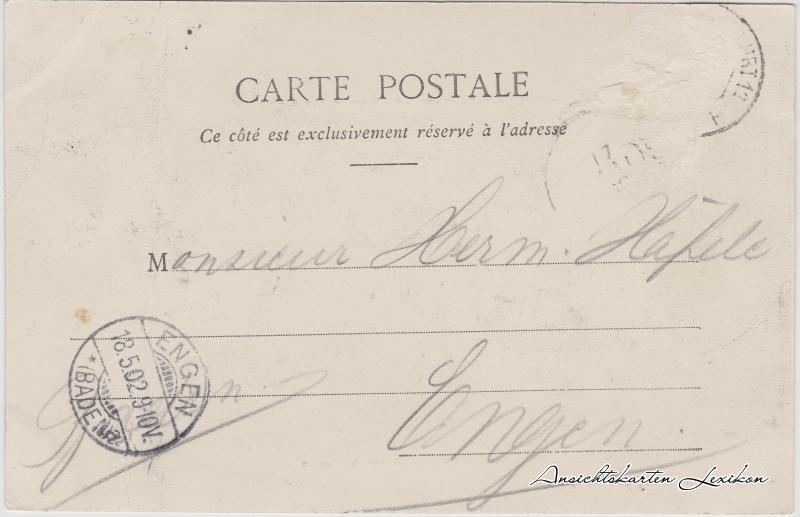 CARTE POSTALE
Ce côté est exclusivement réservé à l'adresse
Monsieur Herm. Häfele
Engen.
ENGEN
18.5.02.9-10V.
* (BADEN)
Ansichtskarten Lexikon